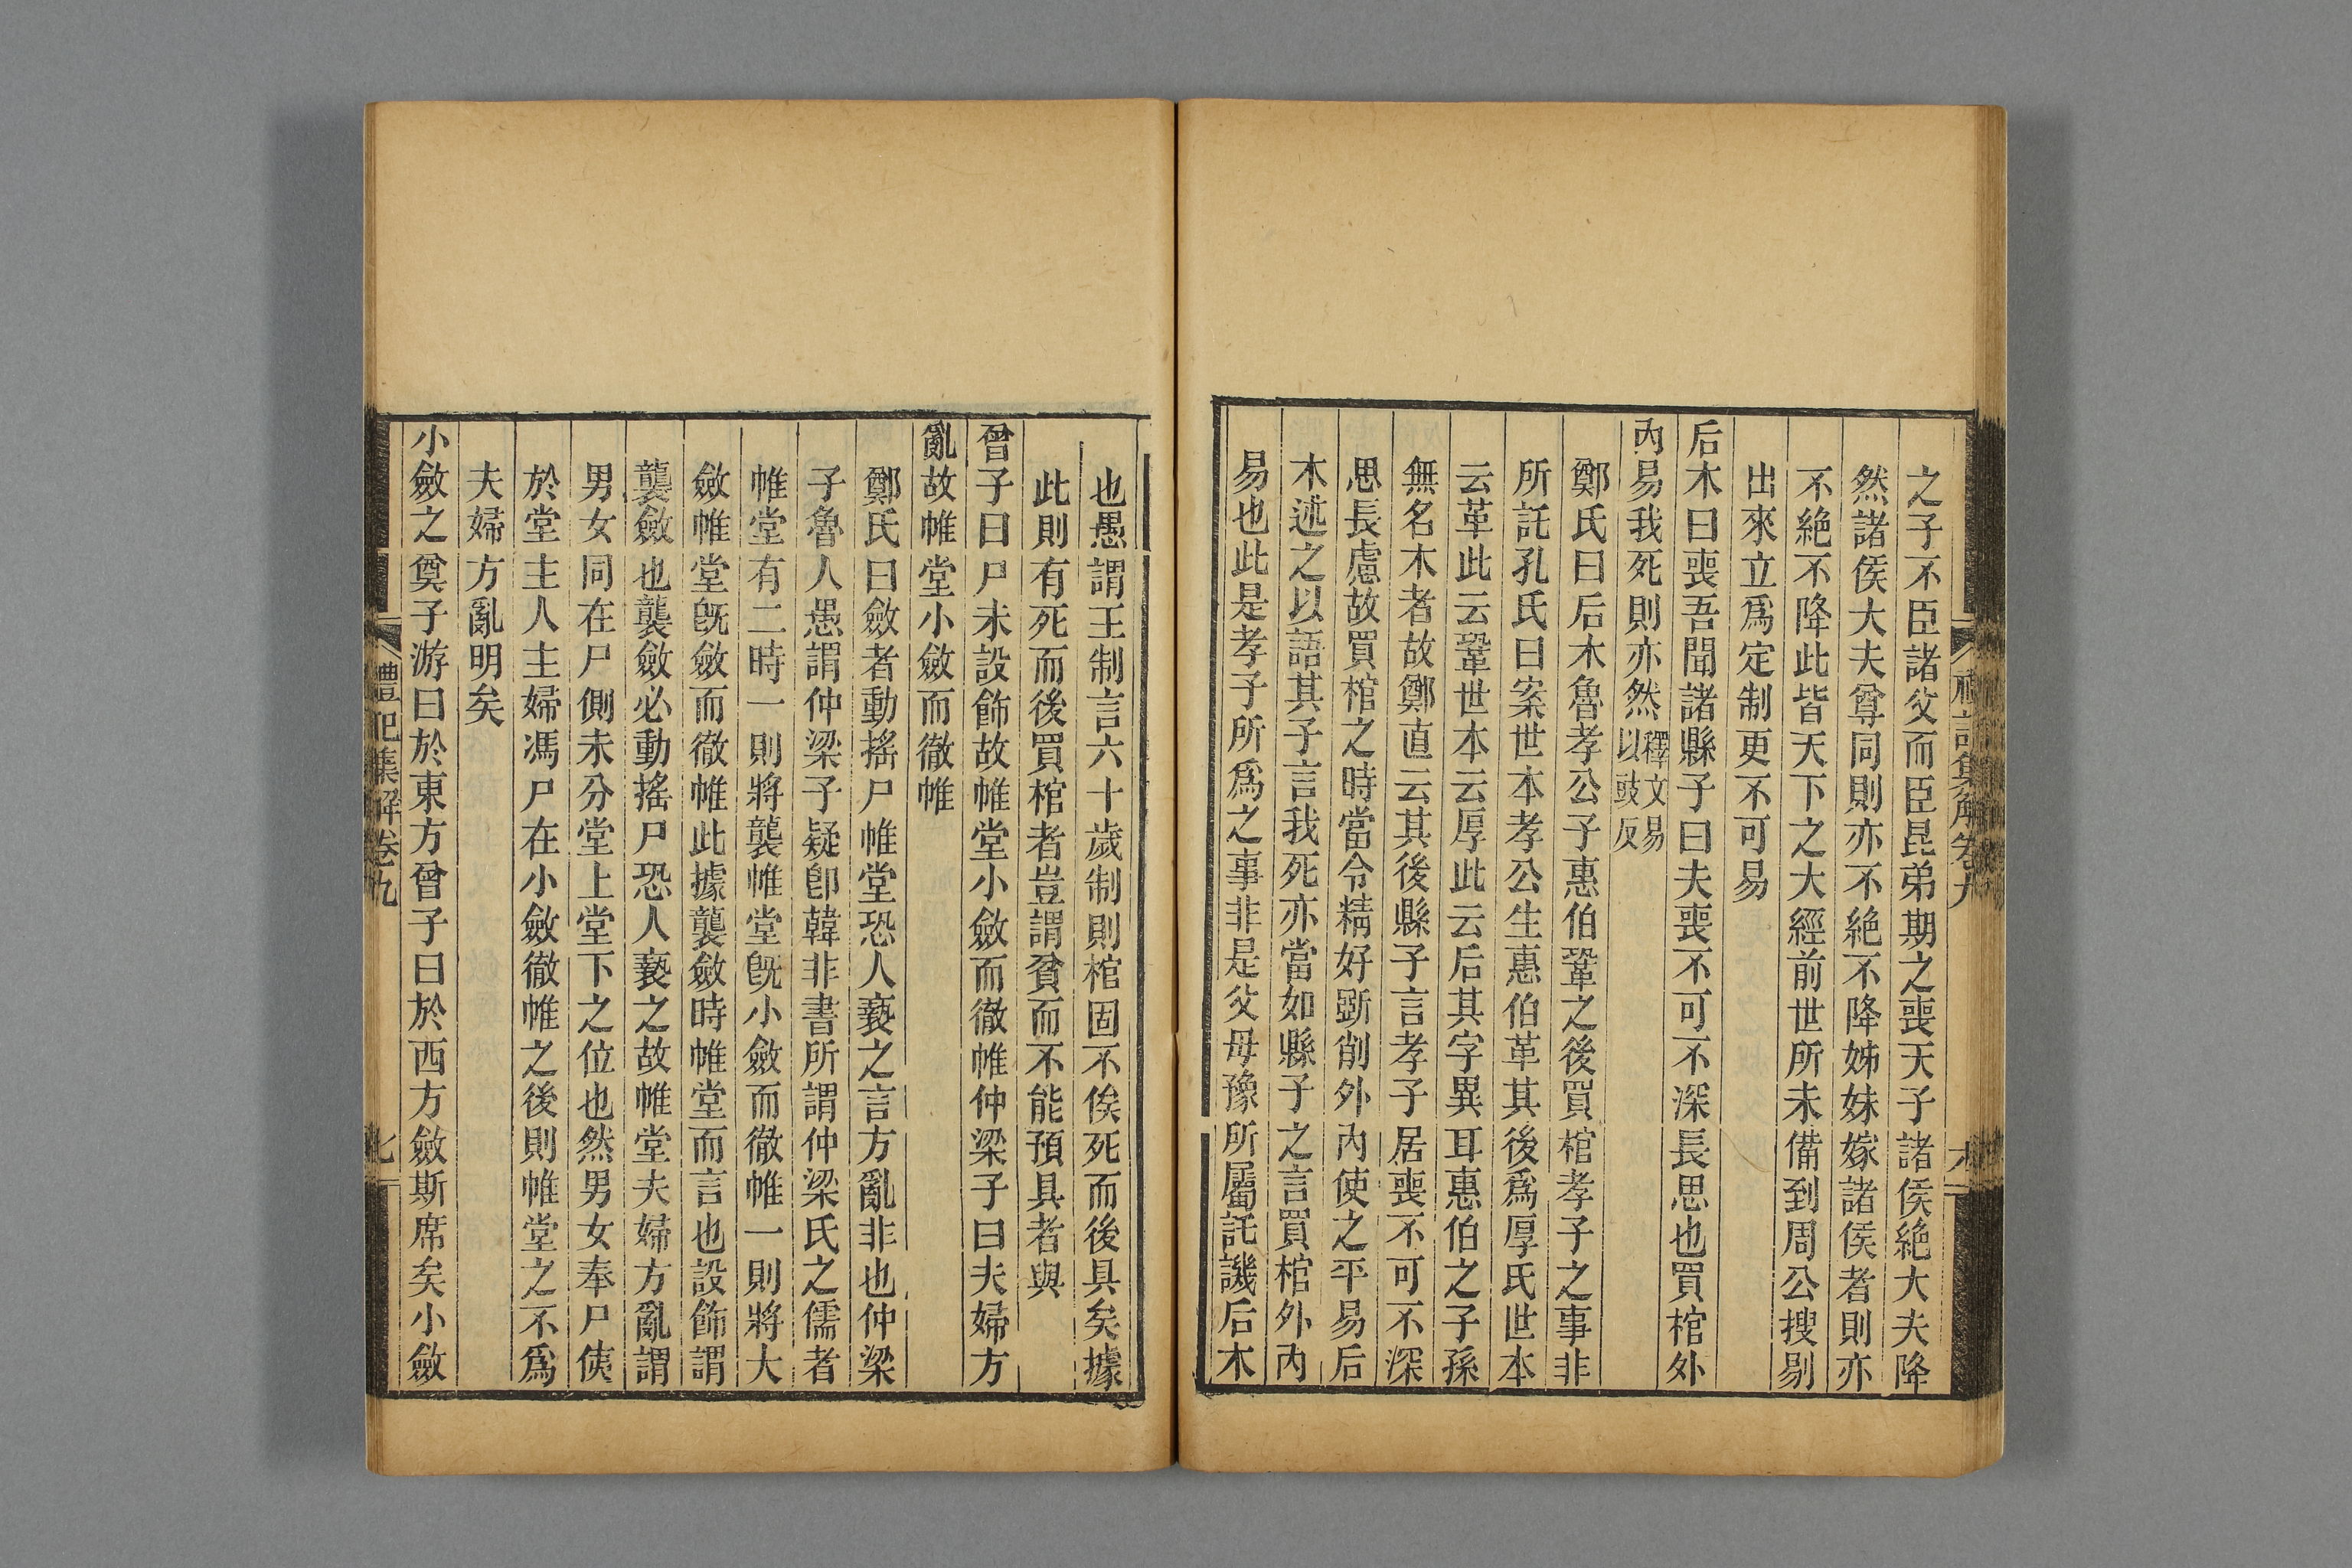 之子不臣諸父而臣昆弟期之喪天子諸侯絶大夫降
然諸侯大夫尊同則亦不絶不降姊妹嫁諸侯者則亦
不絶不降此皆天下之大經前世所未備到周公搜剔
出來立爲定制更不可易
后木曰喪吾聞諸縣子曰夫喪不可不深長思也買棺外
內易我死則亦然釋文易以豉反
鄭氏曰后木魯孝公子惠伯鞏之後買棺孝子之事非
所託孔氏曰案世本孝公生惠伯革其後爲厚氏世本
云革此云鞏世本云厚此云后其字異耳惠伯之子孫
無名木者故鄭直云其後縣子言孝子居喪不可不深
思長慮故買棺之時當令精好斲削外內使之平易后
木述之以語其子言我死亦當如縣子之言買棺外內
易也此是孝子所爲之事非是父母豫所屬託譏后木
也愚謂王制言六十歲制則棺固不俟死而後具矣據
此則有死而後買棺者豈謂貧而不能預具者與
曾子曰尸未設飾故帷堂小斂而徹帷仲梁子曰夫婦方
亂故帷堂小斂而徹帷
鄭氏曰斂者動搖尸帷堂恐人褻之言方亂非也仲梁
子魯人愚謂仲梁子疑卽韓非書所謂仲梁氏之儒者
帷堂有二時一則將襲帷堂旣小斂而徹帷一則將大
斂帷堂旣斂而徹帷此據襲斂時帷堂而言也設飾謂
襲斂也襲斂必動搖尸恐人褻之故帷堂夫婦方亂謂
男女同在尸側未分堂上堂下之位也然男女奉尸侇
於堂主人主婦馮尸在小斂徹帷之後則帷堂之不爲
夫婦方亂明矣
小斂之奠子游曰於東方曾子曰於西方斂斯席矣小斂
禮記集解卷九